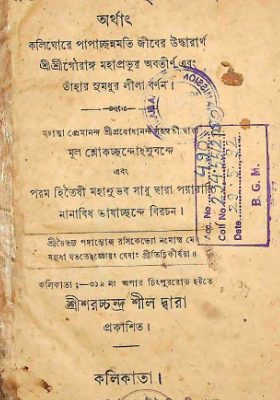 অর্থাৎ
কলিঘোরে পাপাচ্ছন্নমতি জীবের উদ্ধারার্থ
শ্রীশ্রীগৌরাঙ্গ মহাপ্রভুর অবতীর্ণ এবং
তাঁহার সুমধুর লীলা বর্ণন।
প্রেমানন্দ শ্রীপ্রবোধানন্দ
মূল শ্লোকচ্ছন্দোহনুবন্দে
এবং
পরম হিতৈষী মহানুভব সাধু দ্বারা
নানাবিধ ভাষাচ্ছন্দে বিরচন।
শ্রীচৈতন্য পদাম্ভোজ রসিকেভ্যো নমোস্তু মে
কলিকাতা;—৩১৯ নং অপার চিৎপুররোড হইতে
শ্রীশরচ্চন্দ্র শীল দ্বারা
প্রকাশিত।
কলিকাতা।
Acc. No
Call No
Date
B. G. M.